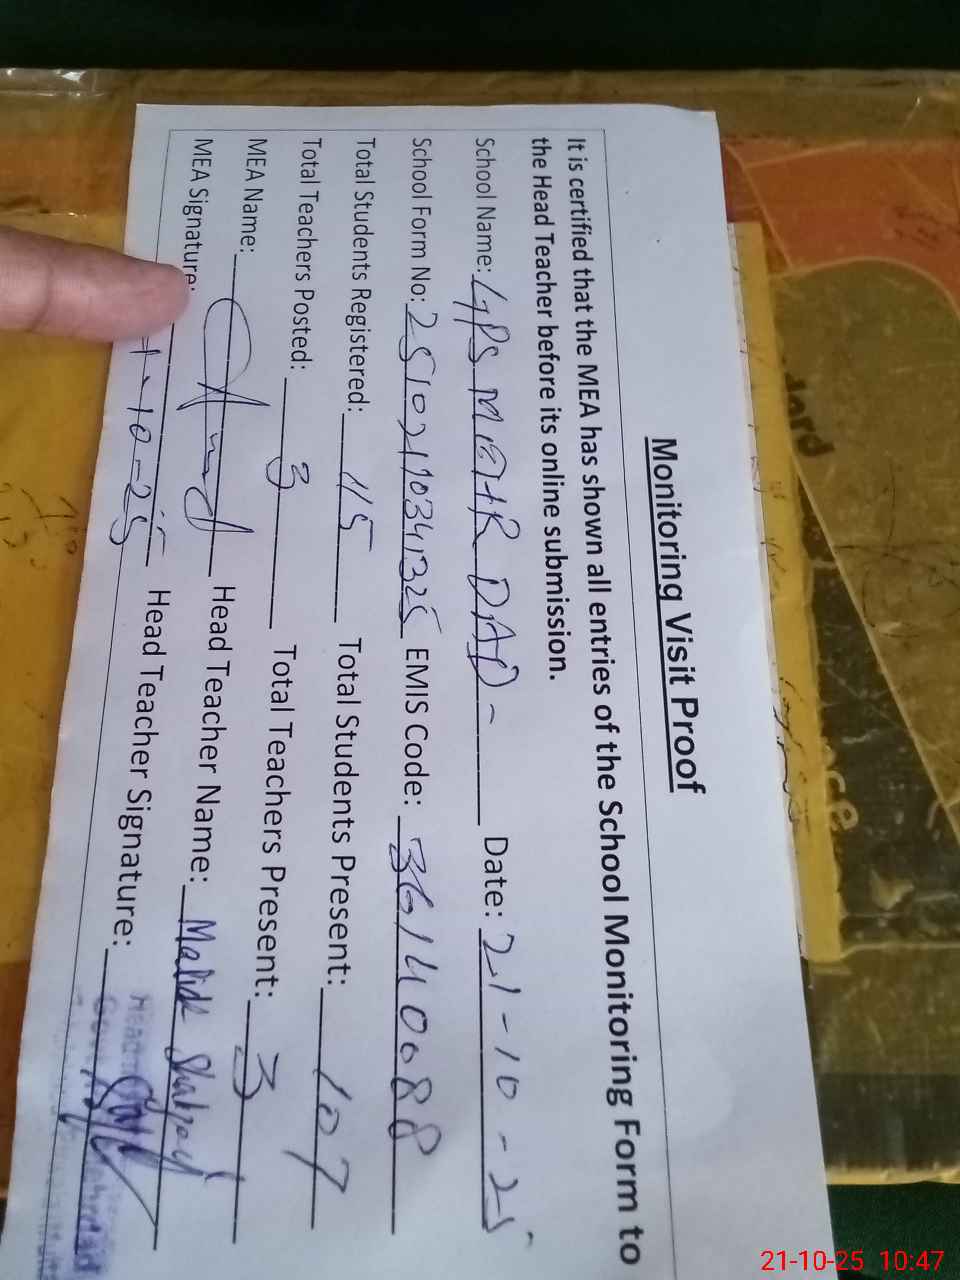 Monitoring Visit Proof
It is certified that the MEA has shown all entries of the School Monitoring Form to
the Head Teacher before its online submission.
School Name: GPS Date: 21-10-25
School Form No: EMIS Code: 36140088
Total Students Registered: 115 Total Students Present: 107
Total Teachers Posted: 3 Total Teachers Present: 3
MEA Name: Head Teacher Name: Malik
MEA Signature: Head Teacher Signature:
-10-25
21-10-25 10:47